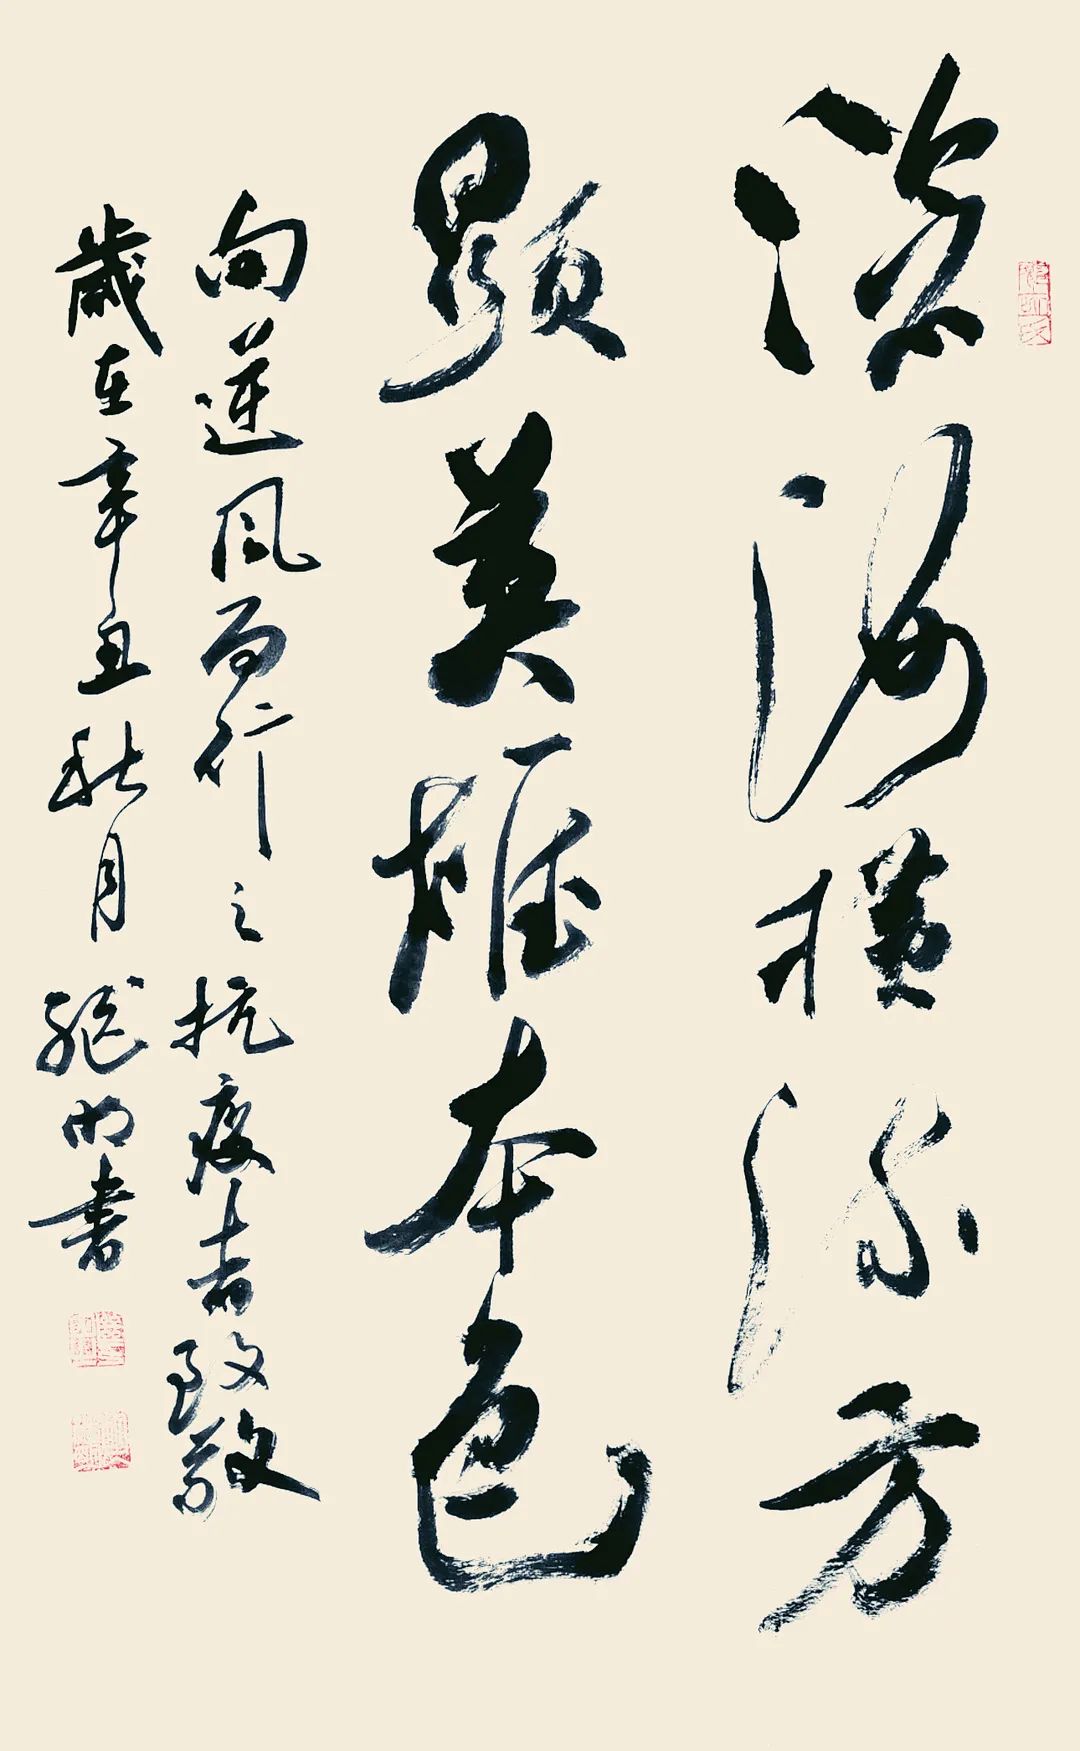 沧海横流方
显英雄本色
向逆风而行之抗疫者致敬
岁在辛丑秋月 明书